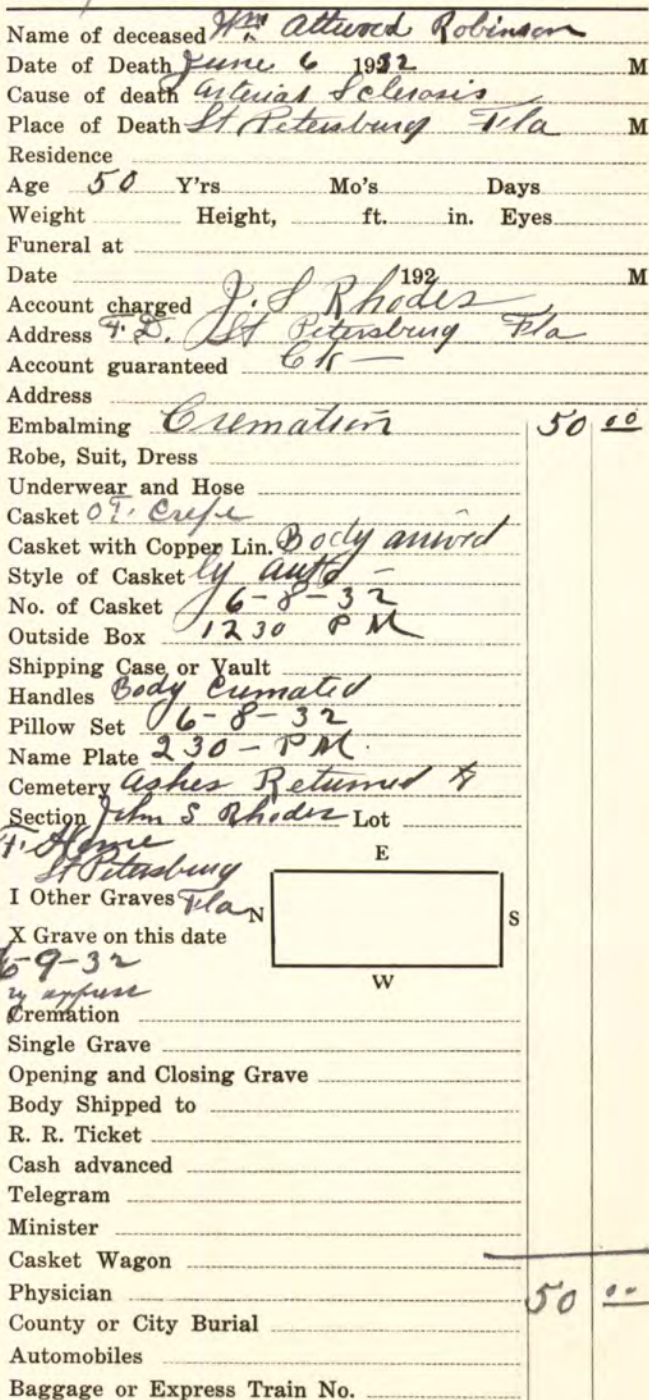 Name of deceased Wm Attwood Robinson
Date of Death June 6 1932 M
Cause of death Arterial Sclerosis
Place of Death St Petersburg Fla M
Residence
Age 50 Y'rs Mo's Days
Weight Height, ft. in. Eyes
Funeral at
Date 192 M
Account charged J. S Rhodes
Address F. D. St Petersburg Fla
Account guaranteed
Address
Embalming Cremation 50 00
Robe, Suit, Dress
Underwear and Hose
Casket Crepe
Casket with Copper Lin. Body arrived
Style of Casket by auto -
No. of Casket 6-8-32
Outside Box 12 30 P M
Shipping Case or Vault
Handles Body Cremated
Pillow Set 6-8-32
Name Plate 2 30 - P M.
Cemetery Ashes Returned to
Section John S Rhodes Lot
F. Home
St Petersburg
E
I Other Graves Fla N S
X Grave on this date
6-9-32
W
by express
Cremation
Single Grave
Opening and Closing Grave
Body Shipped to
R. R. Ticket
Cash advanced
Telegram
Minister
Casket Wagon
Physician 50 00
County or City Burial
Automobiles
Baggage or Express Train No.